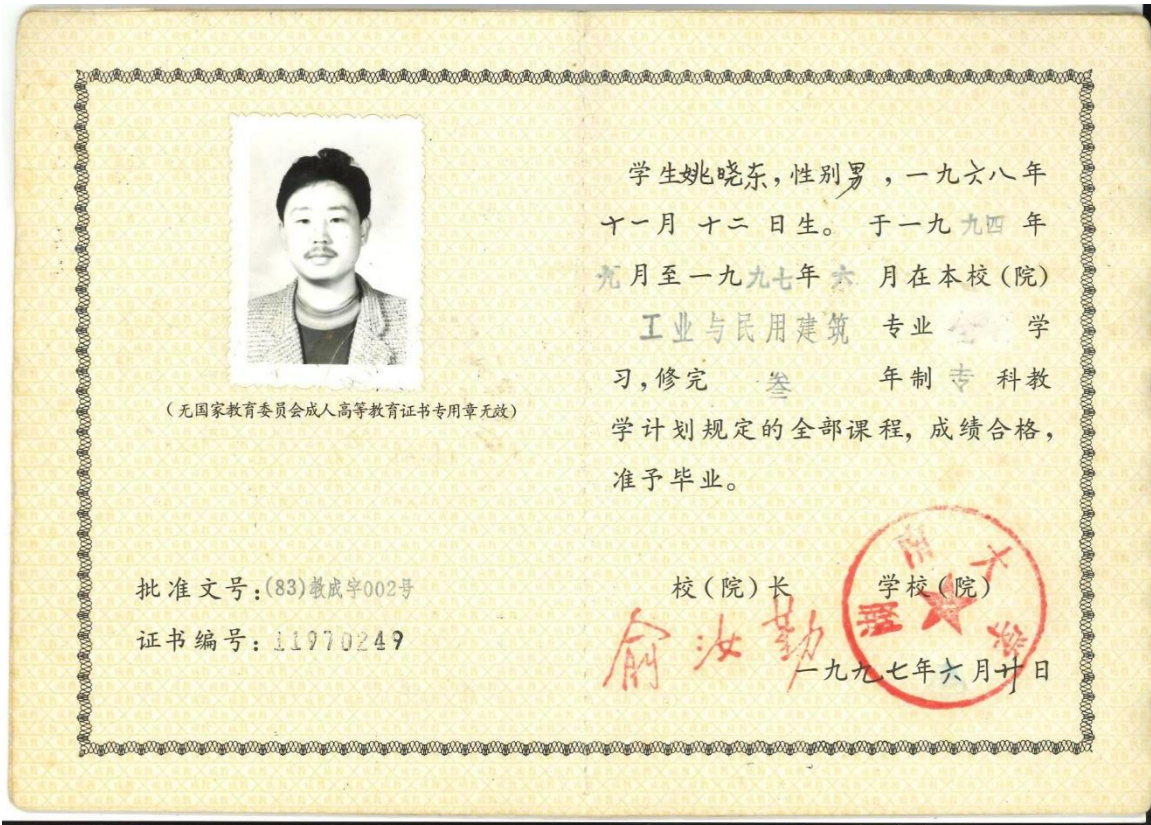 (无国家教育委员会成人高等教育证书专用章无效)
批准文号:(83)教成字002号
证书编号:11970249
学生姚晓东,性别男,一九六八年
十一月 十二 日生。 于一九 九四 年
九月至一九九七年 六 月在本校(院)
工业与民用建筑 专业 学
习,修完 叁 年制 专 科教
学计划规定的全部课程,成绩合格,
准予毕业。
校(院)长 学校(院)
俞汝勤
湖南大学
一九九七年六月廿日